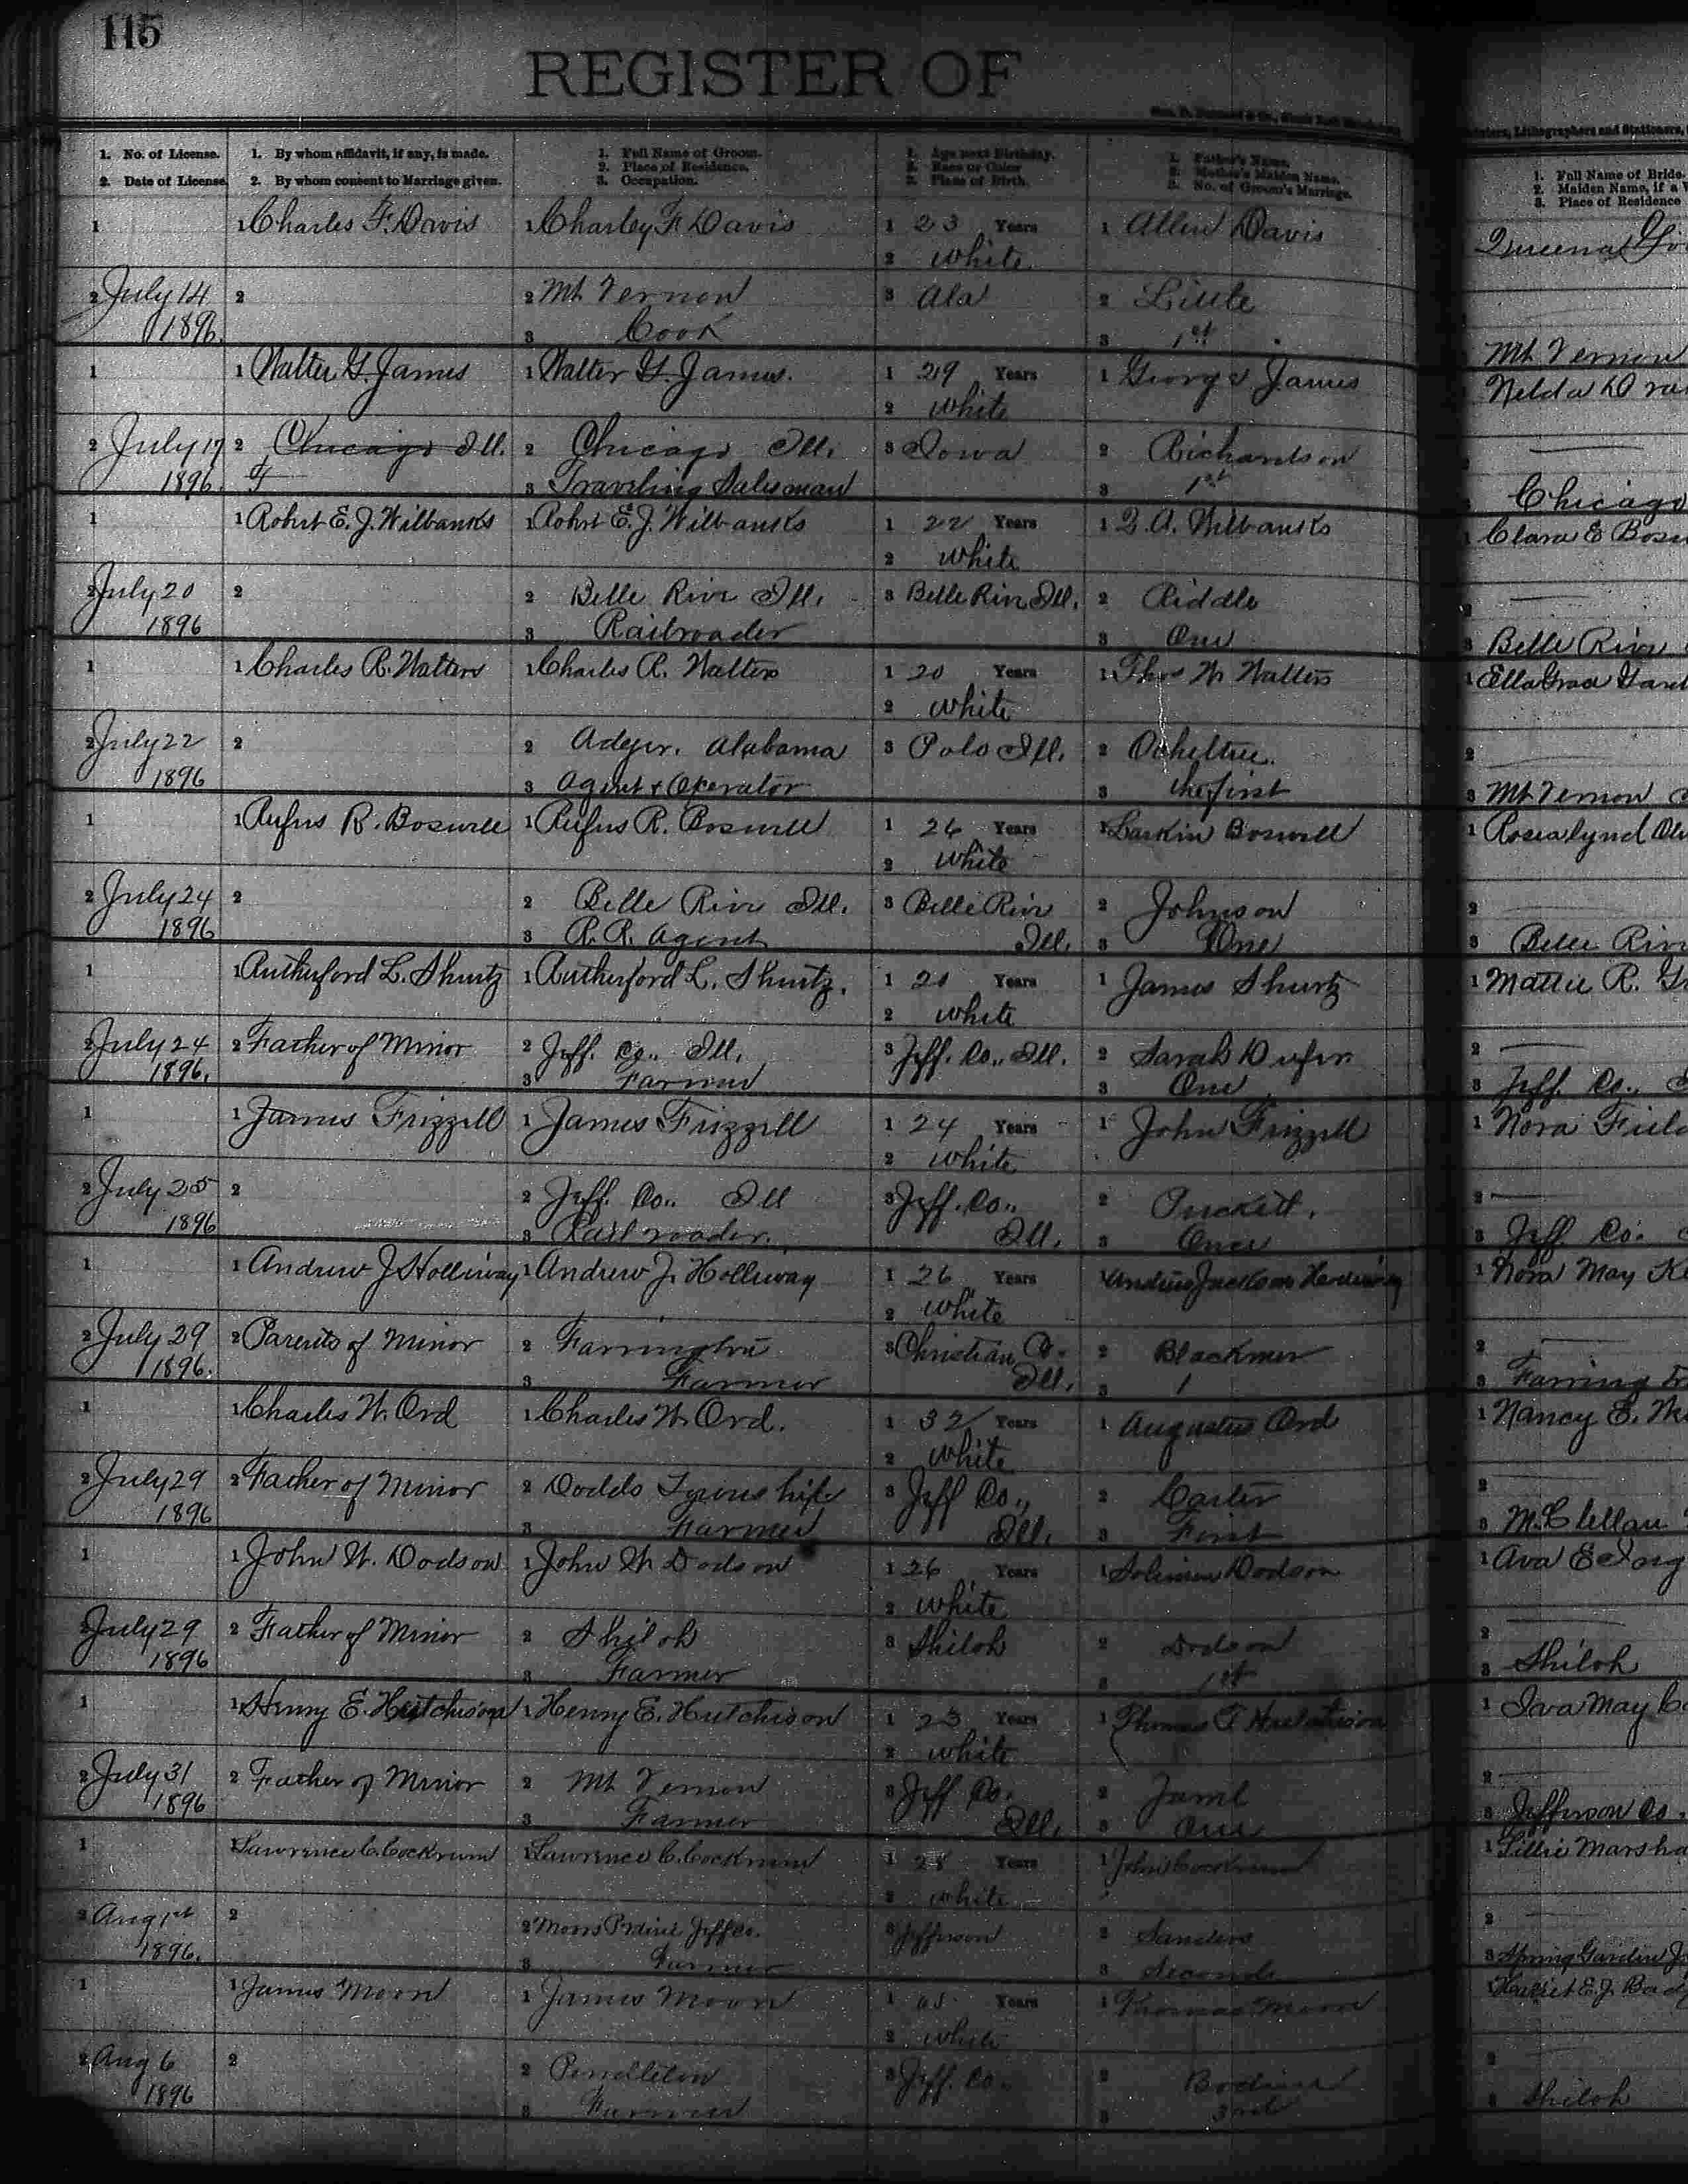 115
REGISTER OF
1. No. of License.
2. Date of License.
1. By whom affidavit, if any, is made.
2. By whom consent to Marriage given.
1. Full Name of Groom.
2. Place of Residence.
3. Occupation.
1. Age next Birthday.
2. Race or Color
3. Place of Birth.
1. Father's Name.
2. Mother's Maiden Name.
3. No. of Groom's Marriage.
1. Full Name of Bride.
2. Maiden Name, if a
3. Place of Residence
1 1 Charles F. Davis 1 Charley F Davis 1 23 Years 1 Allen Davis
2 White
2 July 14 2 2 Mt Vernon 3 Ala 2 Little
1896. 3 Cook 3 1st
Mt Vernon
1 1 Walter G. James 1 Walter G. James. 1 29 Years 1 George James
2 White
2 July 17 2 Chicago Ill. 2 Chicago Ill. 3 Iowa 2 Richardson
1896. 3 Traveling Salesman 3 1st Chicago
1 1 Robrt E. J. Wilbanks 1 Robrt E. J. Wilbanks 1 22 Years 1 Wilbanks 1 Clara E
2 White
2 July 20 2 2 Belle Rive Ill. 3 Belle Rive Ill. 2 Riddle
1896 3 Railroader 3 One 3 Belle Rive
1 1 Charles R. Watters 1 Charles R. Watters 1 20 Years 1 Thos W Watters 1 Ella Grace
2 White
2 July 22 2 2 Adger. Alabama 3 Polo Ill. 2 Ocheltree.
1896 3 Agent & Operator 3 the first 3 Mt Vernon
1 1 Rufus R. Boswell 1 Rufus R. Boswell 1 26 Years 1 Larkin Boswell 1 Rosealynd
2 White
2 July 24 2 2 Belle Rive Ill. 3 Belle Rive 2 Johnson
1896 3 R. R. Agent Ill. 3 One 3 Belle Rive
1 1 Rutherford L. Shurtz 1 Rutherford L. Shurtz. 1 20 Years 1 James Shurtz 1 Mattie R.
2 White
2 July 24 2 Father of Minor 2 Jeff. Co., Ill. 3 Jeff. Co., Ill. 2 Sarah
1896. 3 Farmer 3 One 3 Jeff. Co.,
1 1 James Frizzell 1 James Frizzell 1 24 Years 1 John Frizzell 1 Nora
2 White
2 July 25 2 2 Jeff. Co., Ill 3 Jeff. Co., 2 Puckett.
1896 3 Railroader. Ill. 3 Once 3 Jeff Co.
1 1 Andrew J Holliway 1 Andrew J. Holliway 1 26 Years 1 Andrew Jackson Holliway 1 Nora May
2 White
2 July 29 2 Parents of Minor 2 Farrington 3 Christian Co. 2 Blackmer
1896. 3 Farmer Ill. 3 1 3
1 1 Charles W. Ord 1 Charles W. Ord. 1 32 Years 1 Augustus Ord 1 Nancy E.
2 White
2 July 29 2 Father of Minor 2 Dodds Township 3 Jeff Co., 2 Carter
1896 3 Farmer Ill. 3 First 3 McClellan
1 1 John W. Dodson 1 John W Dodson 1 26 Years 1 Solimon Dodson 1 Ava E
2 White
2 July 29 2 Father of Minor 2 Shiloh 3 Shiloh 2 Dodson
1896 3 Farmer 3 1st 3 Shiloh
1 1 Henry E. Hutchison 1 Henry E. Hutchison 1 23 Years 1 Thomas F Hutchison 1 Iva May
2 White
2 July 31 2 Father of Minor 2 Mt Vernon 3 Jeff Co. 2
1896 3 Farmer Ill. 3 One 3 Jefferson Co.
1 1 Lawrence C. Cockrum 1 Lawrence C. Cockrum 1 Years 1 John Cockrum 1 Lillie
2 White
2 Aug 1st 2 2 Moors Prairie Jeff Co. 3 Jefferson 2 Sanders
1896. 3 Farmer 3 Second 3 Spring Garden
1 1 James Moon 1 James Moon 1 Years 1 Thomas Moon 1 E. J.
2 White
2 Aug 6 2 2 Pendleton 3 Jeff. Co. 2
1896 3 Farmer 3 3rd 3 Shiloh